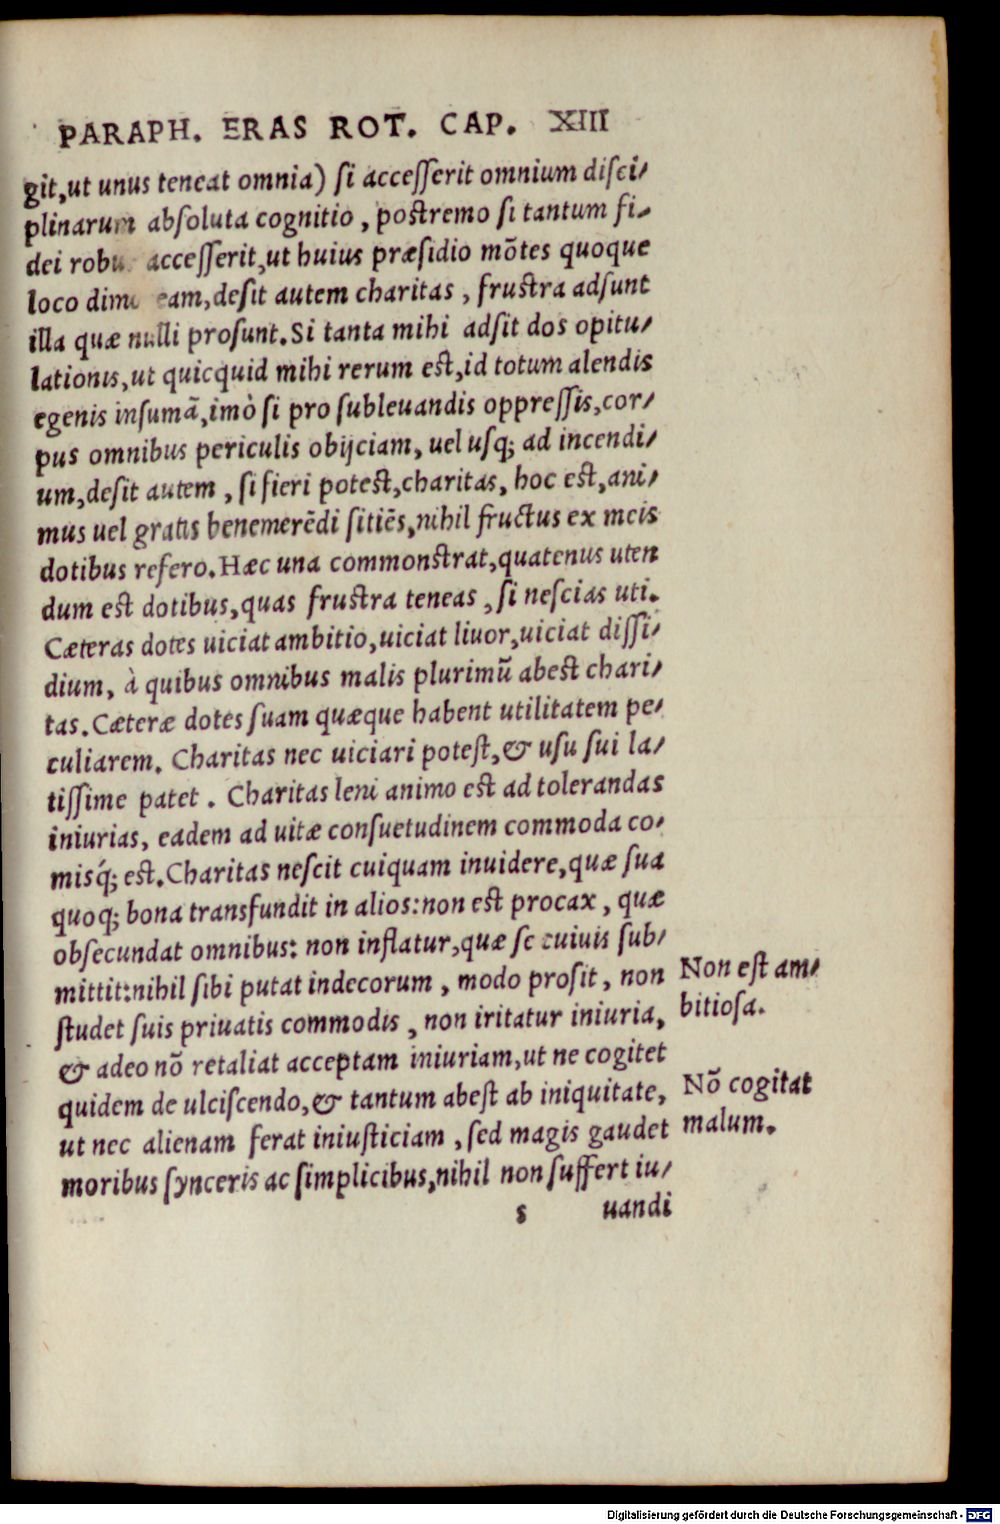 PARAPH. ERAS ROT. CAP. XIII
git,ut unus teneat omnia) ſi acceſſerit omnium diſci⸗
plinarum abſoluta cognitio , poſtremo ſi tantum fi⸗
dei acceſſerit,ut huius præſidio mõtes quoque
loco deſit autem charitas , fruſtra adſunt
illa quæ nulli proſunt.Si tanta mihi adſit dos opitu⸗
lationis,ut quicquid mihi rerum eſt,id totum alendis
egenis inſumã,imò ſi pro ſubleuandis oppreſſis,cor⸗
pus omnibus periculis obijciam, uel uſq; ad incendi⸗
um,deſit autem , ſi fieri poteſt,charitas, hoc eſt,ani⸗
mus uel gratis benemerẽdi ſitiẽs,nihil fructus ex meis
dotibus refero.Hæc una commonſtrat,quatenus uten
dum eſt dotibus,quas fruſtra teneas , ſi neſcias uti.
Cæteras dotes uiciat ambitio,uiciat liuor,uiciat diſſi⸗
dium, à quibus omnibus malis plurimũ abeſt chari⸗
tas.Cæteræ dotes ſuam quæque habent utilitatem pe⸗
culiarem. Charitas nec uiciari poteſt,& uſu ſui la⸗
tiſſime patet . Charitas leni animo eſt ad tolerandas
iniurias, eadem ad uitæ conſuetudinem commoda co⸗
misq́; eſt.Charitas neſcit cuiquam inuidere,quæ ſua
quoq; bona transfundit in alios:non eſt procax , quæ
obſecundat omnibus: non inflatur,quæ ſe cuiuis ſub⸗
mittit:nihil ſibi putat indecorum , modo proſit, non
ſtudet ſuis priuatis commodis , non iritatur iniuria,
& adeo nõ retaliat acceptam iniuriam,ut ne cogitet
quidem de ulciſcendo,& tantum abeſt ab iniquitate,
ut nec alienam ferat iniuſticiam , ſed magis gaudet
moribus ſynceris ac ſimplicibus,nihil non ſuffert iu⸗
s uandi
Non eſt am⸗
bitioſa.
Nõ cogitat
malum.
Digitalisierung gefördert durch die Deutsche Forschungsgemeinschaft - DFG